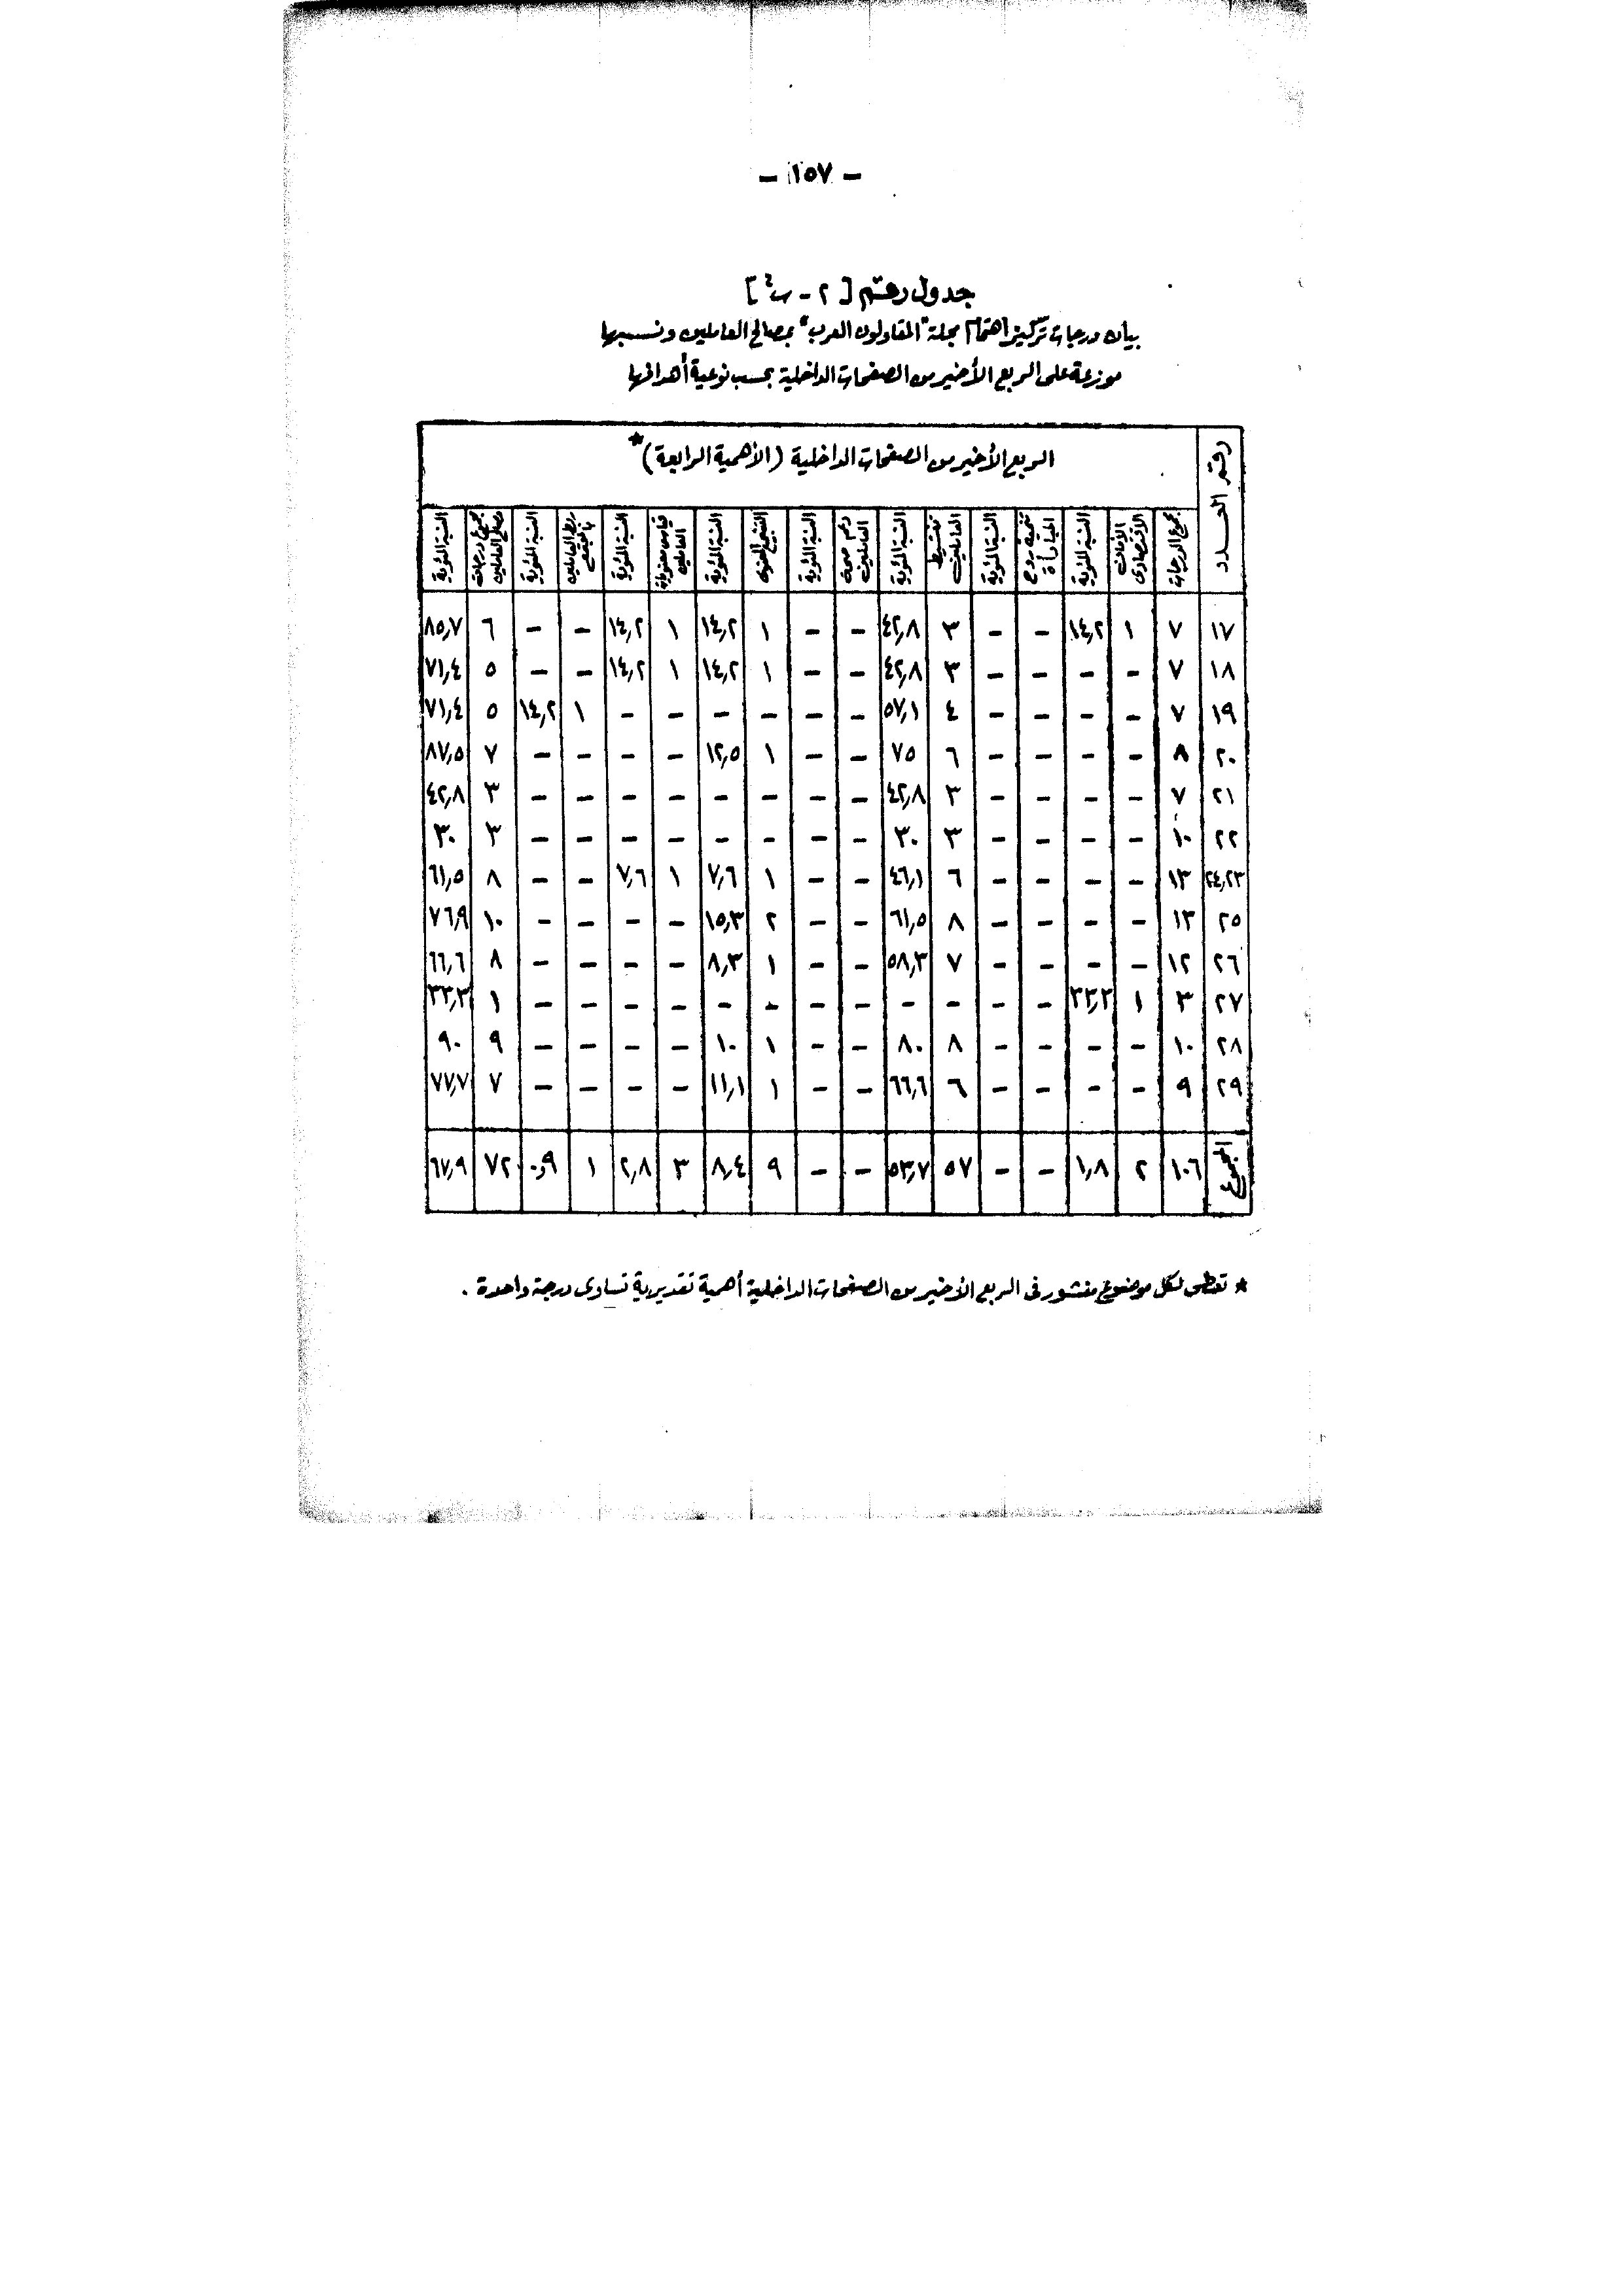 - ١٥٧ -
جدول رقم [ ٢ - ب٤ ]
بيان درجات تركيز اهتمام مجلة "المقاولون العرب" بمصالح العاملين ونسبها
موزعة على الربع الأخير من الصفحات الداخلية بحسب نوعية أهدافها
رقم العدد الربع الأخير من الصفحات الداخلية (الأهمية الرابعة)*
مجموع الدرجات الأمان الاقتصادى النسبة المئوية تنمية روح المبادأة النسبة المئوية تنشيط العاملين النسبة المئوية دعم صحة العاملين النسبة المئوية التشجيع المعنوى النسبة المئوية قياس معنويات العاملين النسبة المئوية ربط العاملين بالمجتمع النسبة المئوية مجموع درجات مصالح العاملين النسبة المئوية
١٧ ٧ ١ ١٤,٢ - - ٣ ٤٢,٨ - - ١ ١٤,٢ ١ ١٤,٢ - - ٦ ٨٥,٧
١٨ ٧ - - - - ٣ ٤٢,٨ - - ١ ١٤,٢ ١ ١٤,٢ - - ٥ ٧١,٤
١٩ ٧ - - - - ٤ ٥٧,١ - - - - - - ١ ١٤,٢ ٥ ٧١,٤
٢٠ ٨ - - - - ٦ ٧٥ - - ١ ١٢,٥ - - - - ٧ ٨٧,٥
٢١ ٧ - - - - ٣ ٤٢,٨ - - - - - - - - ٣ ٤٢,٨
٢٢ ١٠ - - - - ٣ ٣٠ - - - - - - - - ٣ ٣٠
٢٤,٢٣ ١٣ - - - - ٦ ٤٦,١ - - ١ ٧,٦ ١ ٧,٦ - - ٨ ٦١,٥
٢٥ ١٣ - - - - ٨ ٦١,٥ - - ٢ ١٥,٣ - - - - ١٠ ٧٦,٩
٢٦ ١٢ - - - - ٧ ٥٨,٣ - - ١ ٨,٣ - - - - ٨ ٦٦,٦
٢٧ ٣ ١ ٣٣,٣ - - - - - - - - - - - - ١ ٣٣,٣
٢٨ ١٠ - - - - ٨ ٨٠ - - ١ ١٠ - - - - ٩ ٩٠
٢٩ ٩ - - - - ٦ ٦٦,٦ - - ١ ١١,١ - - - - ٧ ٧٧,٧
المجموع ١٠٦ ٢ ١,٨ - - ٥٧ ٥٣,٧ - - ٩ ٨,٤ ٣ ٢,٨ ١ ٠,٩ ٧٢ ٦٧,٩
* تعطى لكل موضوع منشور فى الربع الأخير من الصفحات الداخلية أهمية تقديرية تساوى درجة واحدة .